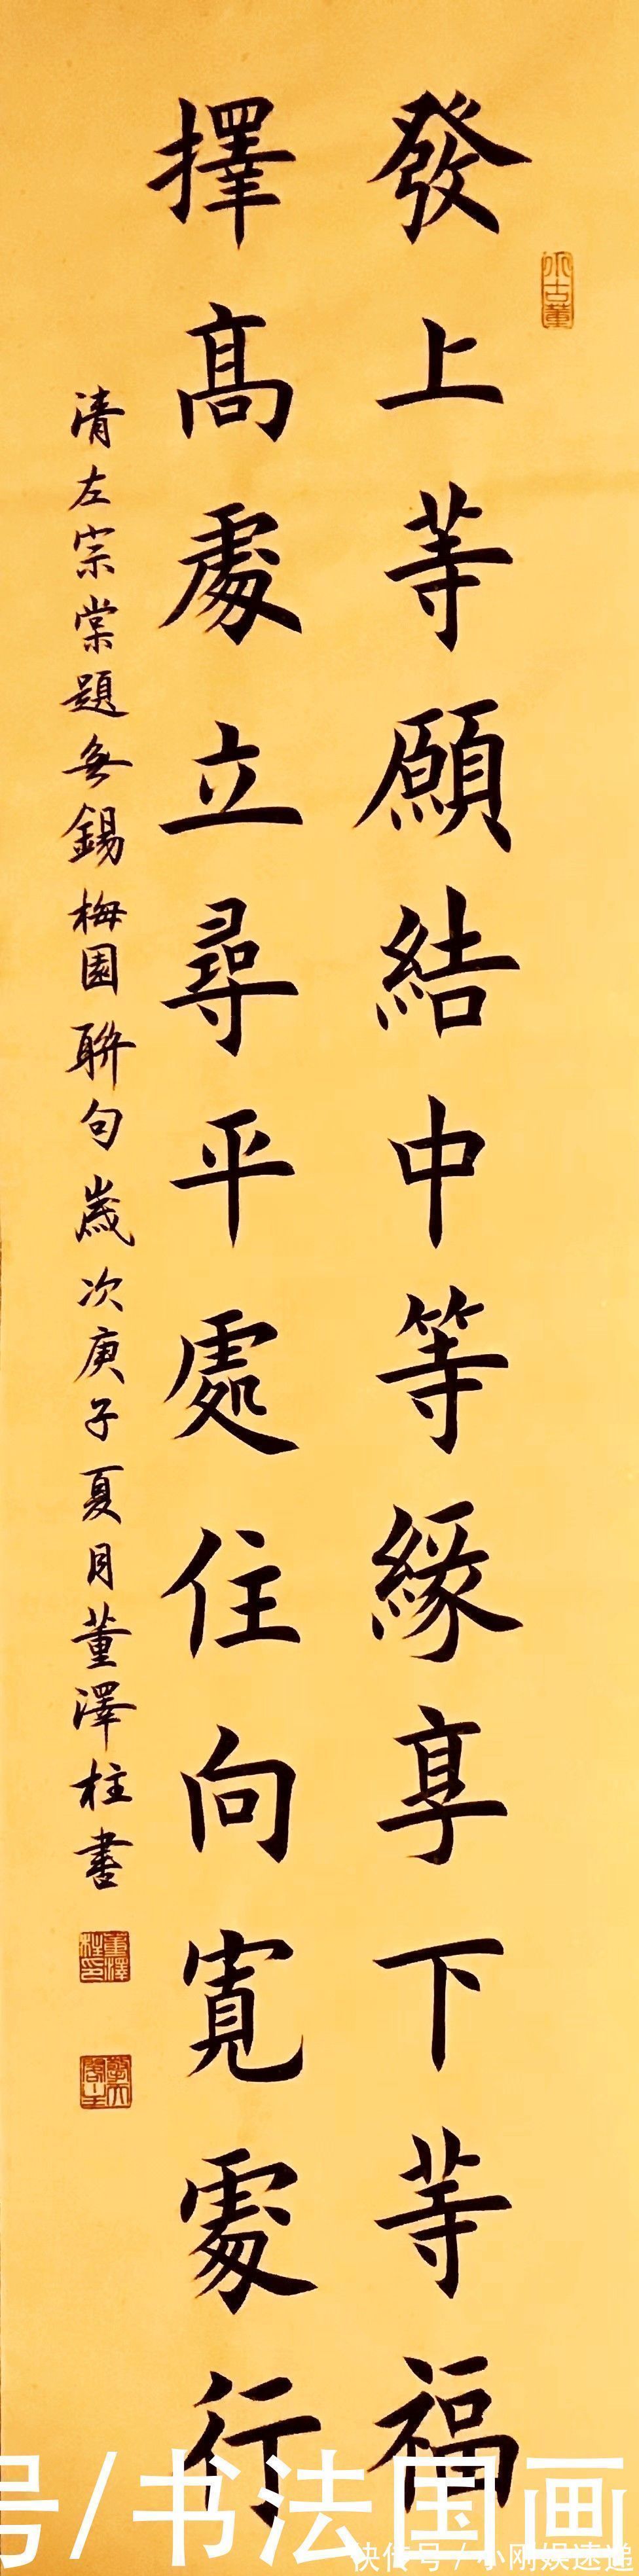 發上等願結中等緣享下等福
擇高處立尋平處住向寬處行
清左宗棠題無錫梅園聯句歲次庚子夏月董澤柱書
号/书法国画
快传号/小刚娱速递